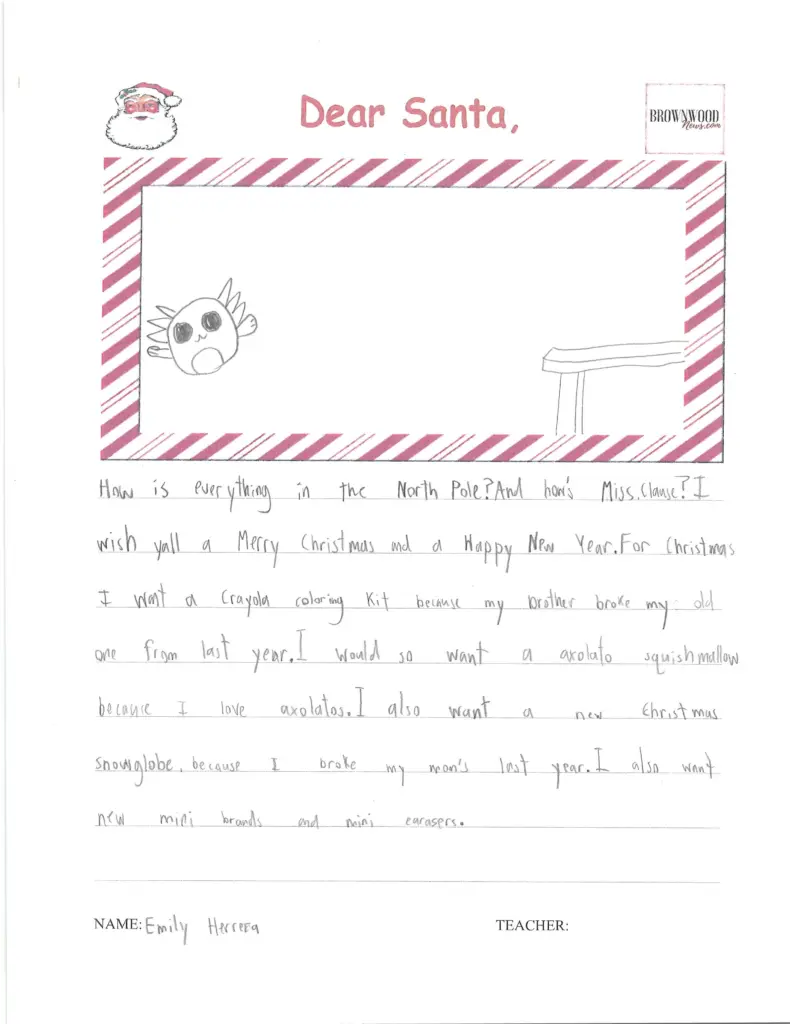 Dear Santa,
BROWNWOOD
News.com
How is everything in the North Pole?And how's Miss.Clause?I
wish yall a Merry Christmas and a Happy New Year.For Christmas
I want a Crayola coloring Kit because my brother broke my old
one from last year.I would so want a axolato squishmallow
because I love axolatos.I also want a new Christmas
snowglobe, because I broke my mom's last year.I also want
new mini brands and mini earasers.
NAME: Emily Herrera
TEACHER: